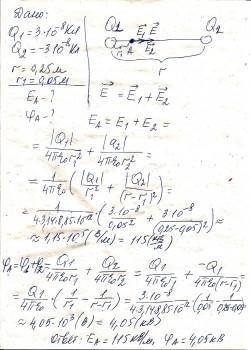 Дано:
Q₁ = 3·10⁻⁸ Кл
Q₂ = -3·10⁻⁸ Кл
r = 0,25 м
r₁ = 0,05 м
E_A - ?
φ_A - ?
Q₁ A E₁ E₂ Q₂
r₁ E
r
E = E₁ + E₂
E_A = E₁ + E₂ =
= |Q₁|/4πε₀r₁² + |Q₂|/4πε₀r₂² =
= 1/4πε₀ (|Q₁|/r₁² + |Q₂|/(r-r₁)²) =
= 1/4·3,14·8,85·10⁻¹² (3·10⁻⁸/0,05² + 3·10⁻⁸/(0,25-0,05)²) ≈
≈ 1,15·10⁵ (В/м) = 115 (кВ/м)
φ_A = φ₁ + φ₂ = Q₁/4πε₀r₁ + Q₂/4πε₀r₂ = Q₁/4πε₀r₁ + -Q₁/4πε₀(r-r₁) =
= Q₁/4πε₀ (1/r₁ - 1/r-r₁) = 3·10⁻⁸/4·3,14·8,85·10⁻¹² (1/0,05 - 1/0,25-0,05) ≈
≈ 4,05·10³ (В) = 4,05 (кВ)
Ответ: E_A = 115 кВ/м, φ_A = 4,05 кВ